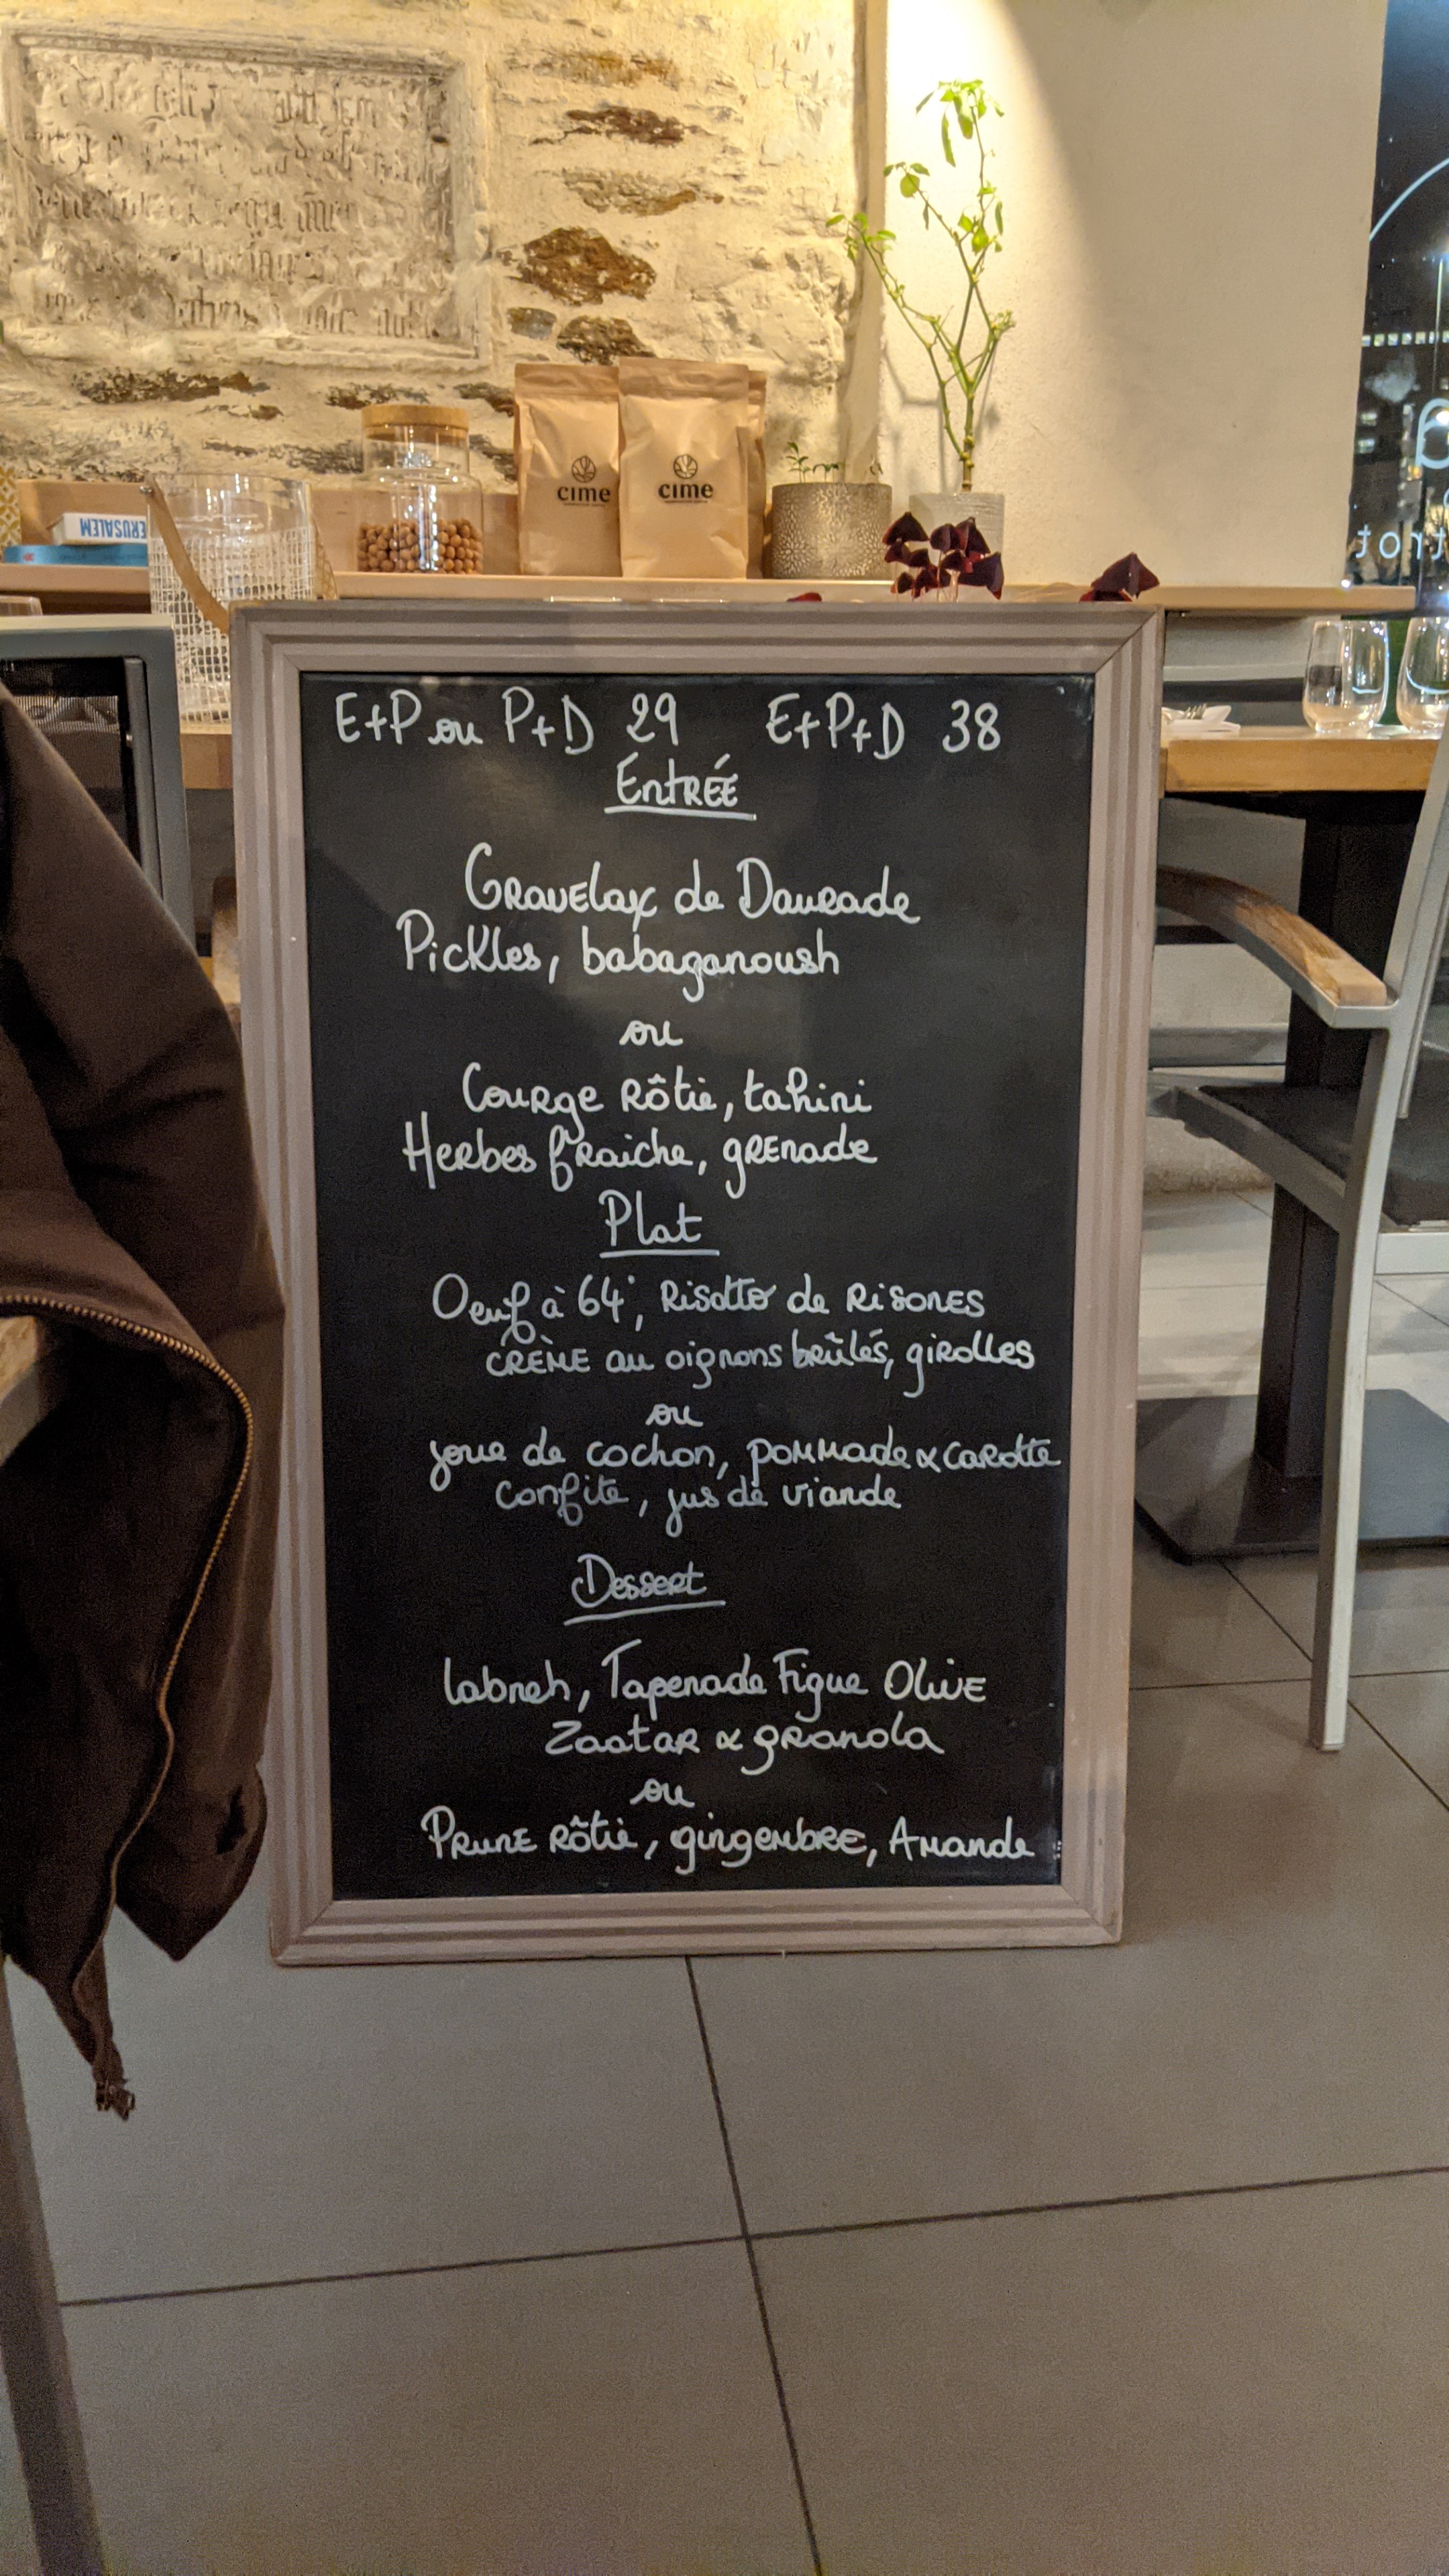 ERUSALEM
cime
cime
trot
E+P ou P+D 29 E+P+D 38
Entrée
Gravelax de Daurade
Pickles, babaganoush
ou
Courge rôtie, tahini
Herbes fraiche, grenade
Plat
Oeuf à 64°, Risotto de Risones
crème au oignons brûlés, girolles
ou
joue de cochon, pommade & carotte
confite, jus de viande
Dessert
labneh, Tapenade Figue Olive
Zaatar & granola
ou
Prune rôtie, gingembre, Amande